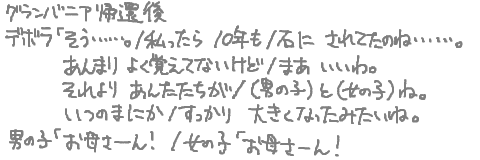 グランバニア帰還後
デボラ「そう……。/私ったら/10年も/石に されてたのね……。
あんまり よく覚えてないけど/まあ いいわ。
それより あんたたちが/(男の子)と(女の子)ね。
いつのまにか/すっかり 大きくなったみたいね。
男の子「お母さーん! /女の子「お母さーん!